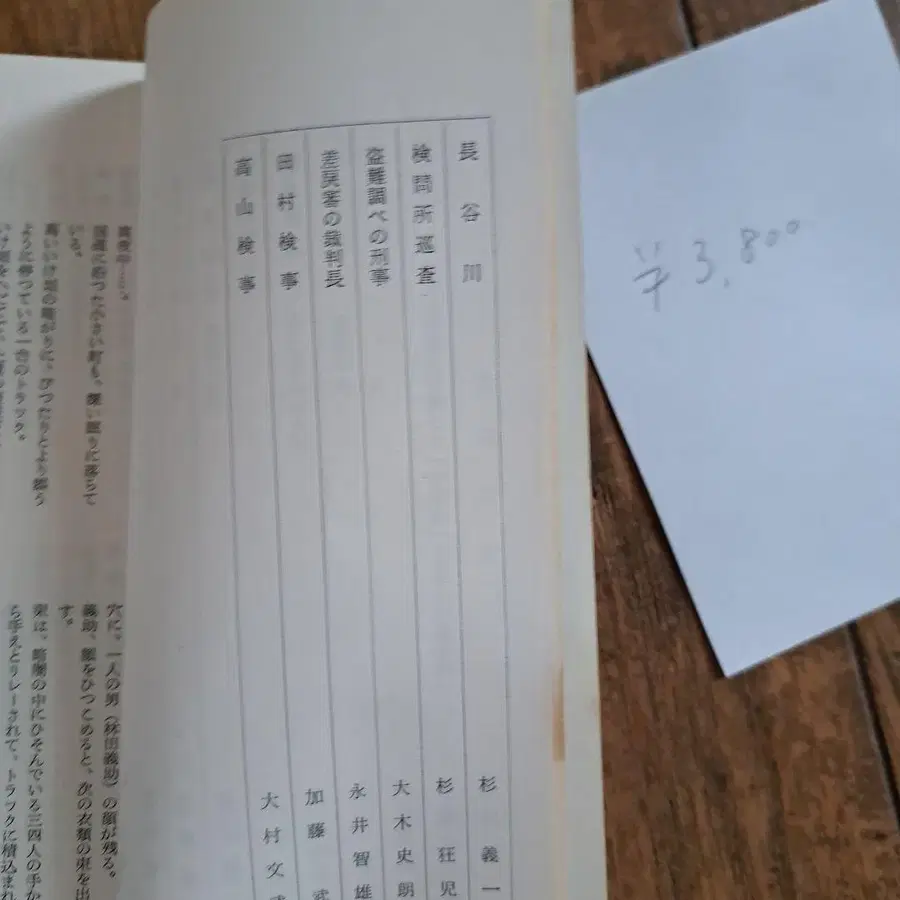 長谷川 杉義一
検問所巡査 杉狂児
盗難調べの刑事 大木史朗
差戻審の裁判長 永井智雄
田村検事 加藤武
高山検事 大村文武
真夜中……。
国道に沿つた小さい町も、深い眠りに落ちて
いる。
高いいけ垣の暗がりに、ぴつたりとより添う
ように停つている一台のトラック。
穴に、一人の男（林田義助）の顔が残る。
義助、顔をひつこめると、次の衣類の束を出
す。
束は、暗闇の中にひそんでいる三四人の手か
ら手えとリレーされて、トラックに積込まれ
￥3,800